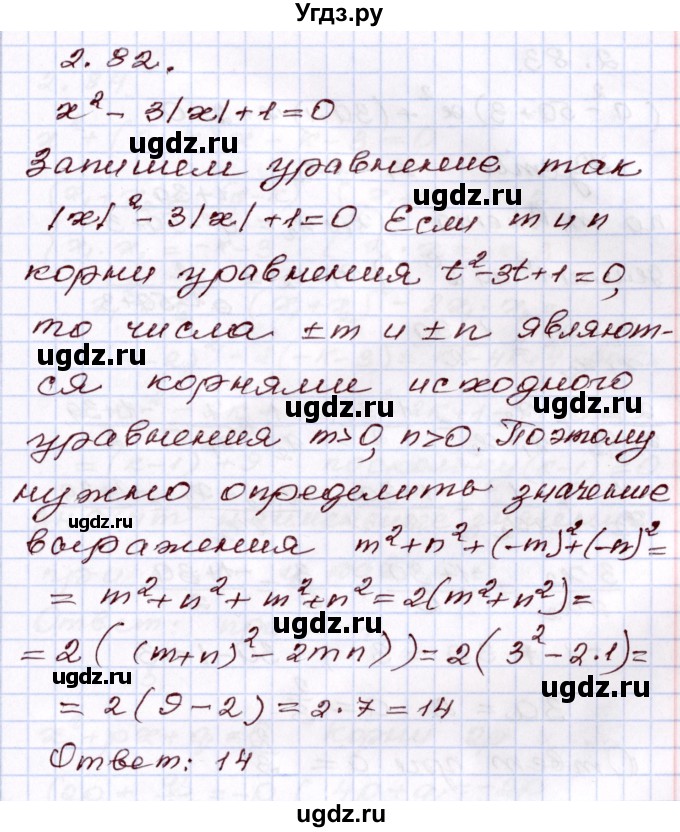 Угдз.ру
2.82.
x² - 3|x| + 1 = 0
Запишем уравнение так
|x|² - 3|x| + 1 = 0 Если m и n
корни уравнения t² - 3t + 1 = 0,
то числа ±m и ±n являют-
ся корнями исходного
уравнения m>0, n>0. Поэтому
нужно определить значение
выражения m² + n² + (-m)² + (-n)² =
= m² + n² + m² + n² = 2(m² + n²) =
= 2((m+n)² - 2mn)) = 2(3² - 2·1) =
= 2(9 - 2) = 2·7 = 14
Ответ: 14
ugdz.ru
ugdz.ru
ugdz.ru
ugdz.ru
ugdz.ru
ugdz.ru
ugdz.ru
ugdz.ru
ugdz.ru
ugdz.ru
ugdz.ru
ugdz.ru